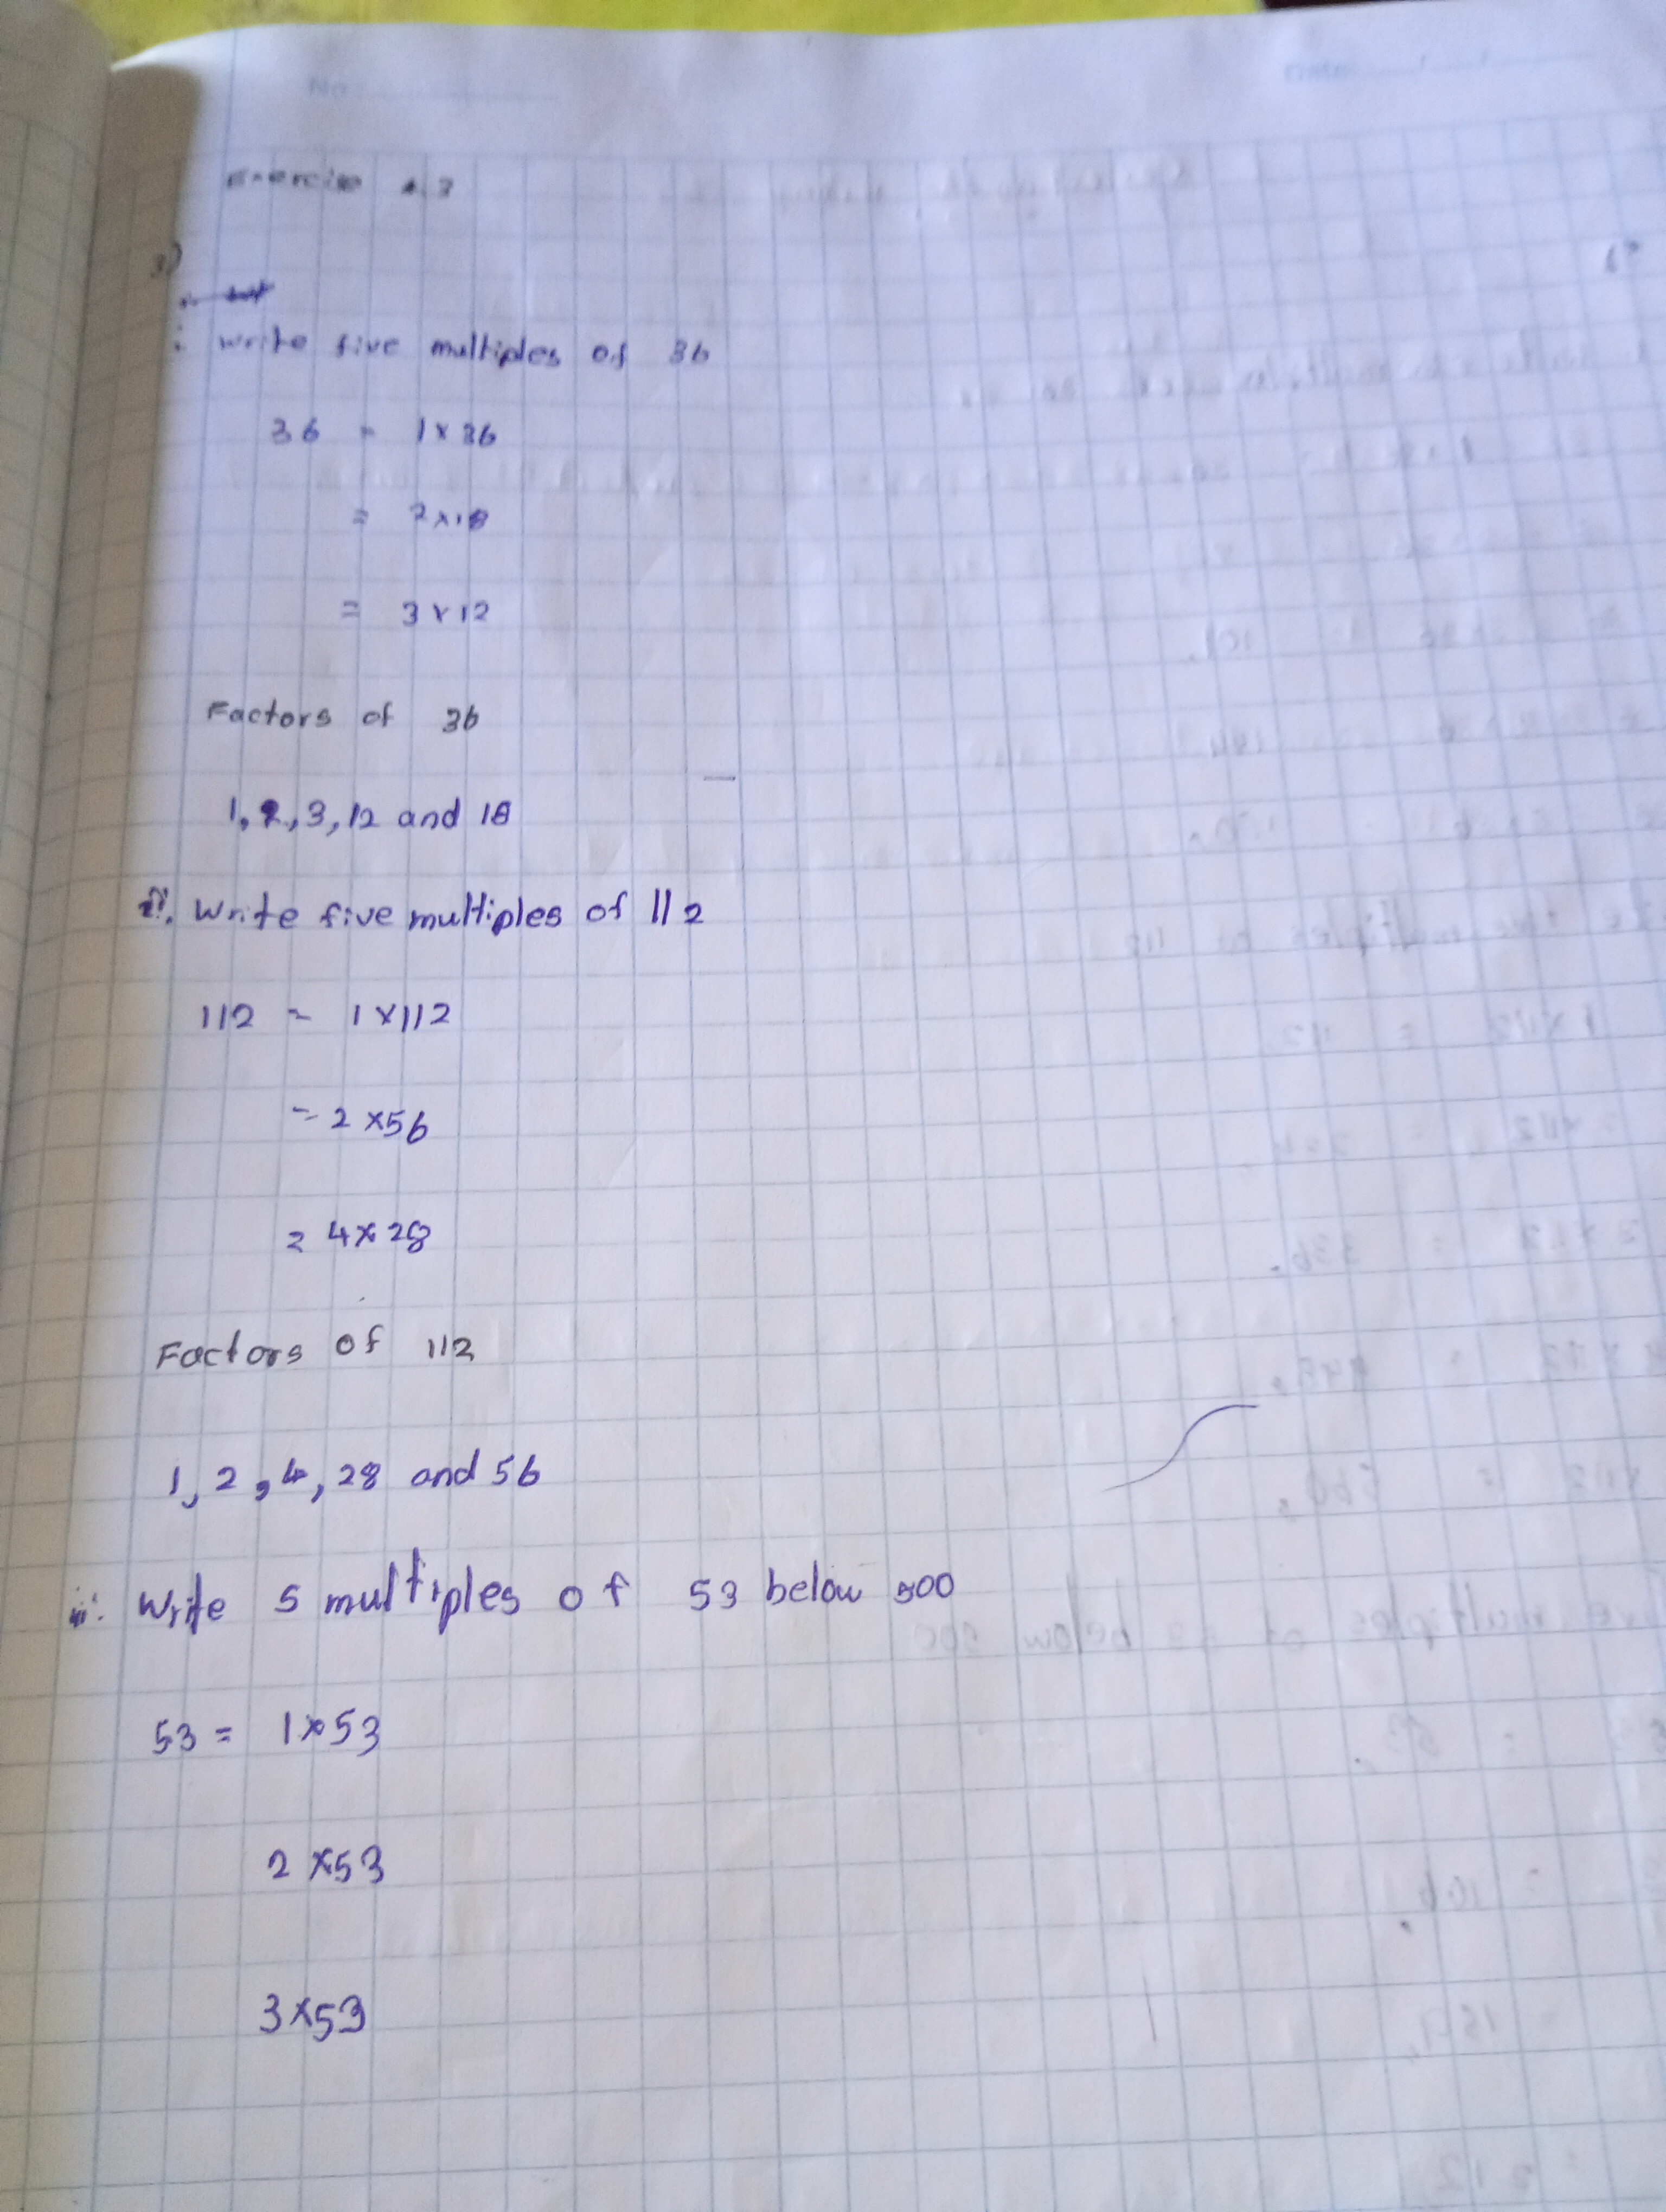 No
Date
Exercise 1.3
3)
i. Write five multiples of 36
36 = 1 x 36
= 2 x 18
= 3 x 12
Factors of 36
1, 2, 3, 12 and 18
ii. Write five multiples of 112
112 = 1 x 112
= 2 x 56
= 4 x 28
Factors of 112
1, 2, 4, 28 and 56
iii. Write 5 multiples of 53 below 500
53 = 1 x 53
2 x 53
3 x 53